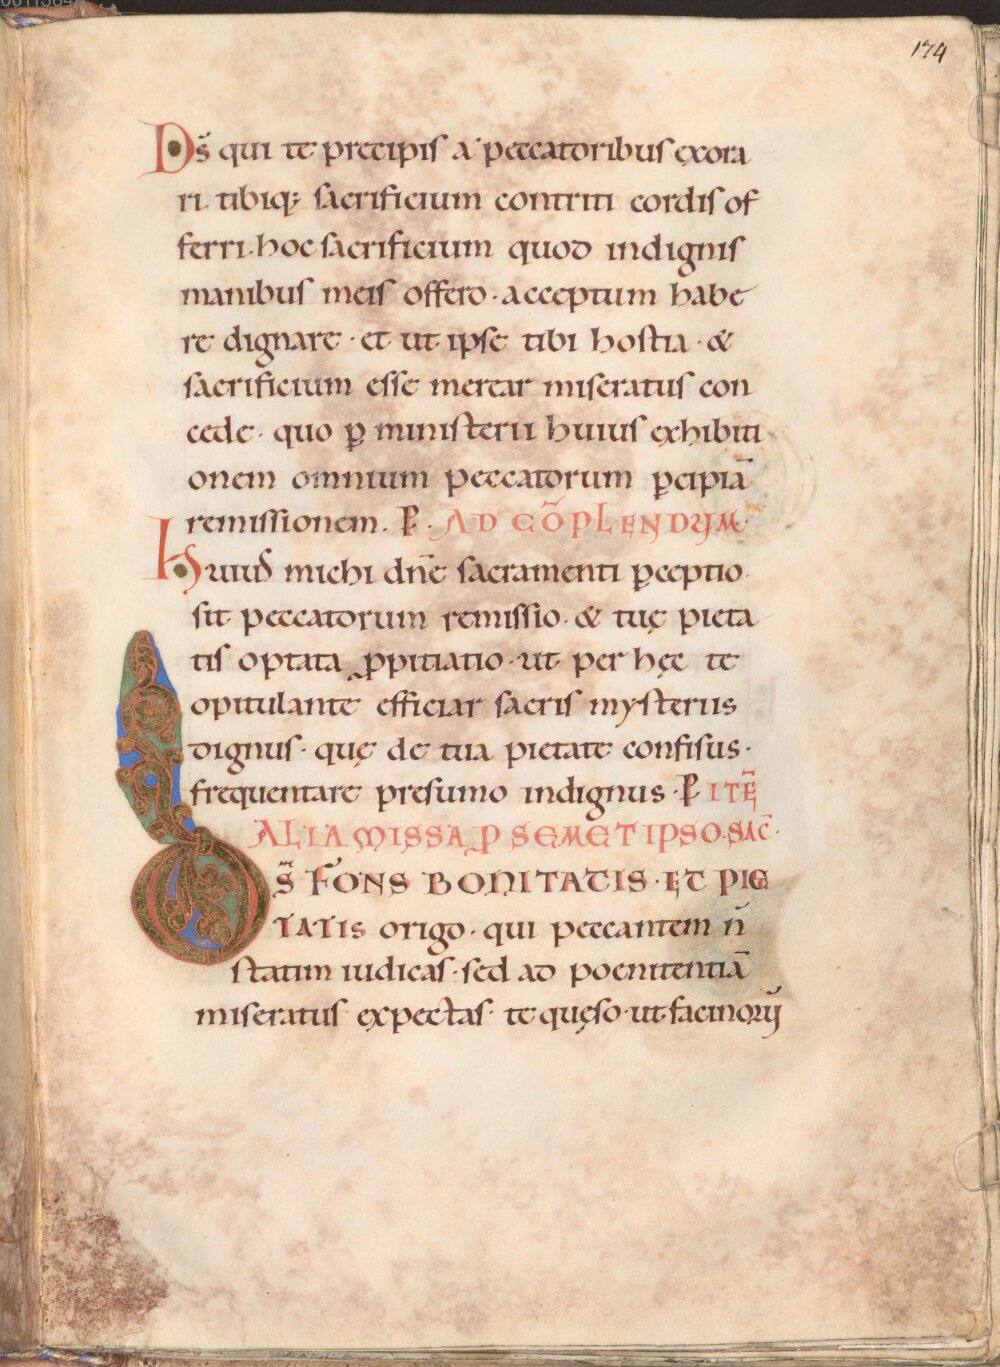 174
Ds̄ qui te precipis a peccatoribus exora
ri. tibiq; sacrificium contriti cordis of
ferri. hoc sacrificium quod indignis
manibus meis offero · acceptum habe
re dignare · et ut ipse tibi hostia · &
sacrificium esse merear miseratus con
cede · quo ꝑ ministerii huius exhibiti
onem omnium peccatorum ꝑcipiā
remissionem. P̄ · AD CŌPLENDUM·
Huius michi dn̄e sacramenti ꝑceptio
sit peccatorum remissio · & tuę pieta
tis optata ꝓpitiatio · ut per hęc te
opitulante efficiar sacris mysteriis
dignus · quę de tua pietate confisus ·
frequentare presumo indignus · P̄ ITĒ
ALIA MISSA P SEMET IPSO. SAC̄·
Ds̄ FONS BONITATIS · ET PIE
TATIS origo · qui peccantem n̄
statim iudicas · sed ad poenitentiā
miseratus expectas · te quęso · ut facinorū